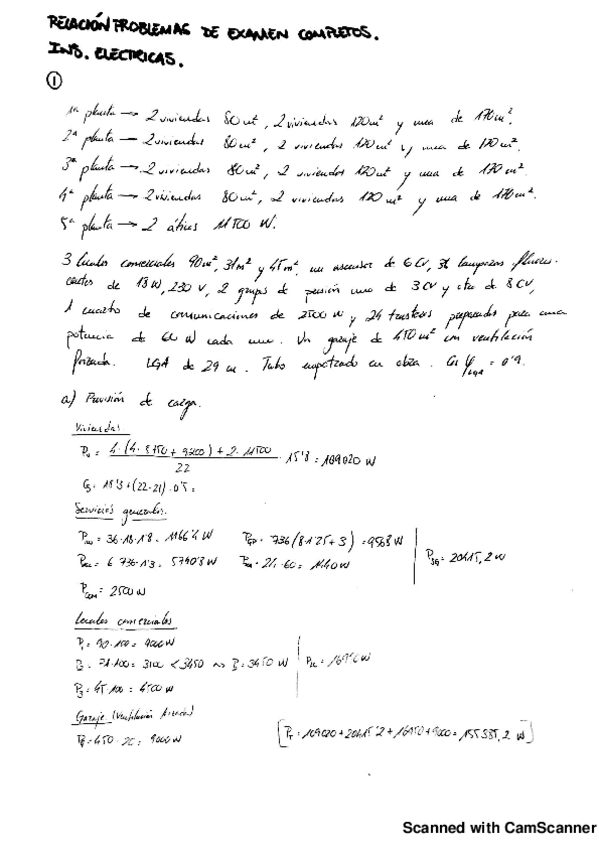 RELACIÓN PROBLEMAS DE EXAMEN COMPLETOS.
INS. ELECTRICAS.
1
1ª planta → 2 viviendas 80m², 2 viviendas 120m² y una de 170m².
2ª planta → 2 viviendas 80m², 2 viviendas 120m² y una de 170m².
3ª planta → 2 viviendas 80m², 2 viviendas 120m² y una de 170m².
4ª planta → 2 viviendas 80m², 2 viviendas 120m² y una de 170m².
5ª planta → 2 áticos 11500 W.
3 locales comerciales 90m², 31m² y 45m², un ascensor de 6 CV, 36 lamparas fluores-
centes de 18W, 230 V, 2 grupos de presión uno de 3 CV y otro de 8 CV,
1 cuarto de comunicaciones de 2500 W y 24 trasteros preparados para una
potencia de 60 W cada uno. Un garaje de 450 m² con ventilación
forzada. LGA de 29 m. Tubo empotrado en obra. Cos φ LGA = 0'9.
a) Previsión de carga.
Viviendas
Pv = 4·(4·5750 + 9200) + 2·11500 / 22 · 15'8 = 109020 W
Cs = 15'3 + (22-21)·0'5 =
Servicios generales.
P = 36·18·1'8 = 1166'4 W PGP = 736(8·1'25+3) = 9568 W
P = 6·736·1'3 = 5740'8 W P = 24·60 = 1440 W PSG = 20415,2 W
PCOM = 2500 W
Locales comerciales
P1 = 90·100 = 9000 W
P2 = 31·100 = 3100 < 3450 → P2 = 3450 W PLC = 16950 W
P3 = 45·100 = 4500 W
Garaje (Ventilación forzada)
PG = 450·20 = 9000 W [PT = 109020 + 20415'2 + 16950 + 9000 = 155385,2 W]
Scanned with CamScanner